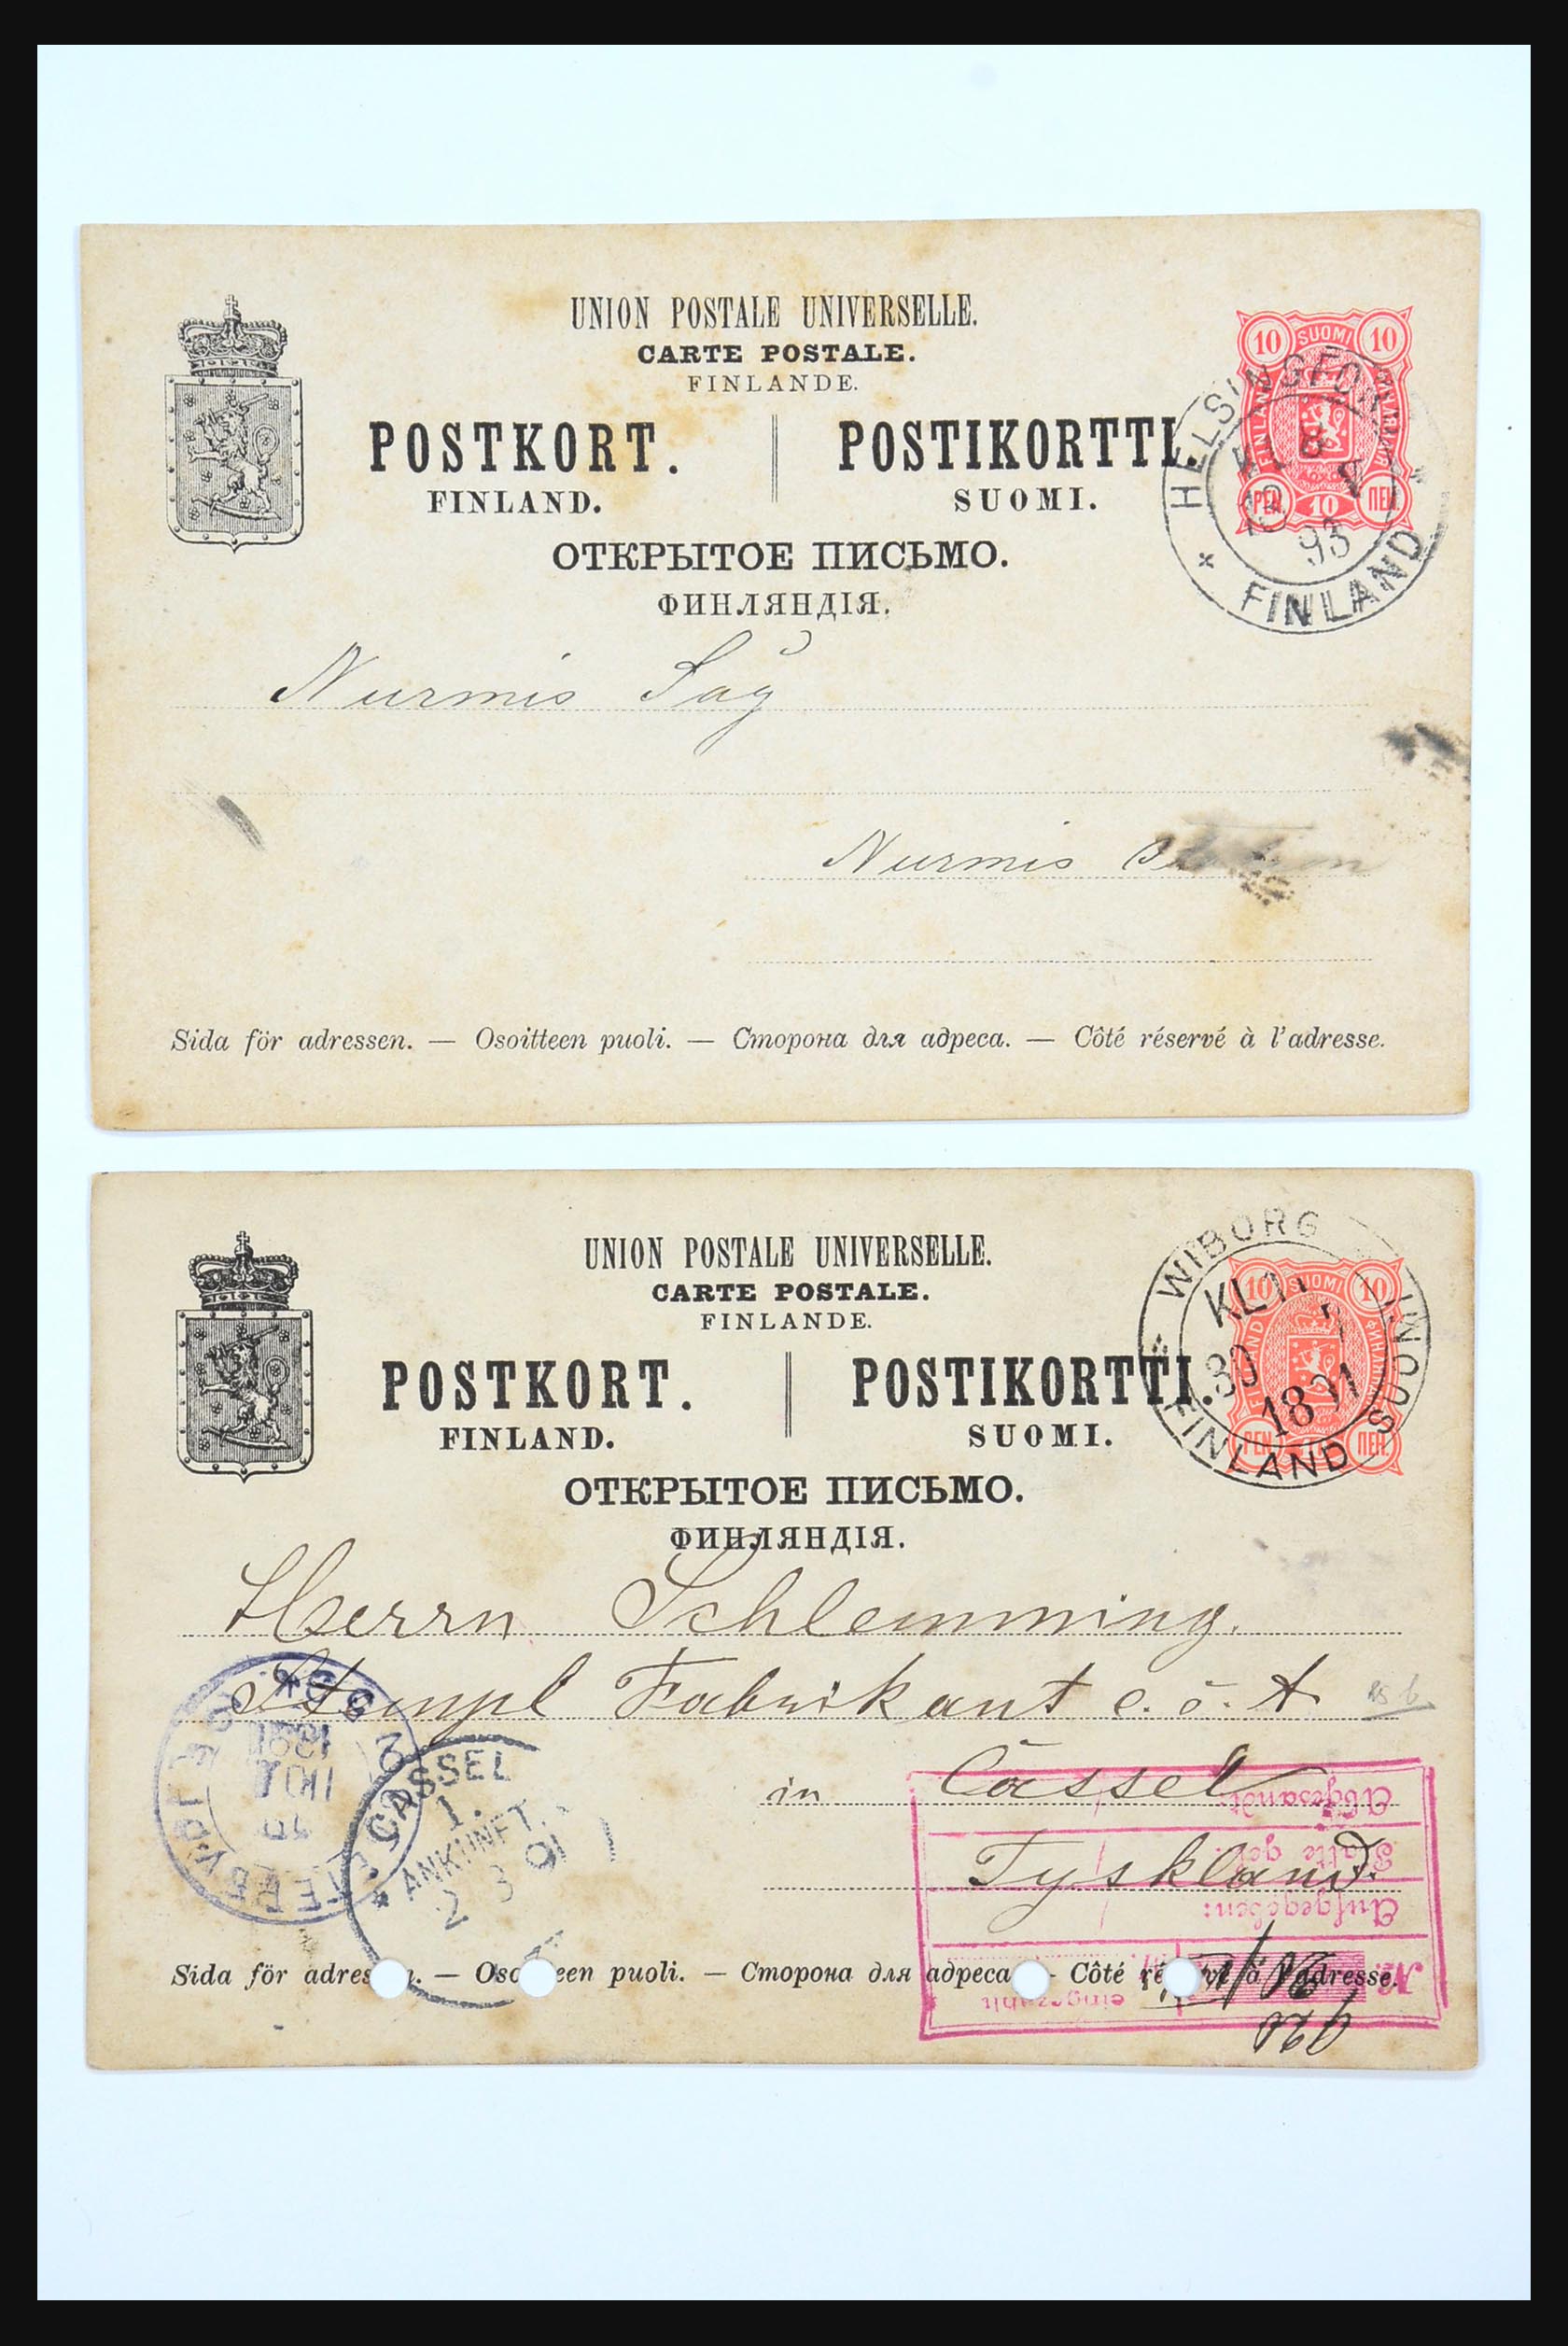 UNION POSTALE UNIVERSELLE.
CARTE POSTALE.
FINLANDE.
POSTKORT. POSTIKORTTI.
FINLAND. SUOMI.
ОТКРЫТОЕ ПИСЬМО.
ФИНЛЯНДІЯ.
10 SUOMI 10
FINLAND
PEN. 10 ПЕН.
HELSINGFORS
93
FINLAND
Nurmis Såg
Nurmis
Sida för adressen. — Osoitteen puoli. — Сторона для адреса. — Côté réservé à l'adresse.
UNION POSTALE UNIVERSELLE.
CARTE POSTALE.
FINLANDE.
POSTKORT. POSTIKORTTI.
FINLAND. SUOMI.
ОТКРЫТОЕ ПИСЬМО.
ФИНЛЯНДІЯ.
10 SUOMI 10
PEN. ПЕН.
WIBORG
KL
30
1891
FINLAND SUOMI
Herrn Schlemming.
Stempl Fabrikant e. o. A
in Cassel
Tyskland.
CASSEL
1.
ANKUNFT.
2 3 91
Abgesandt:
Aufgegeben:
Sida för adres — Oso een puoli. — Сторона для адреса — Côté ré à l'adresse.